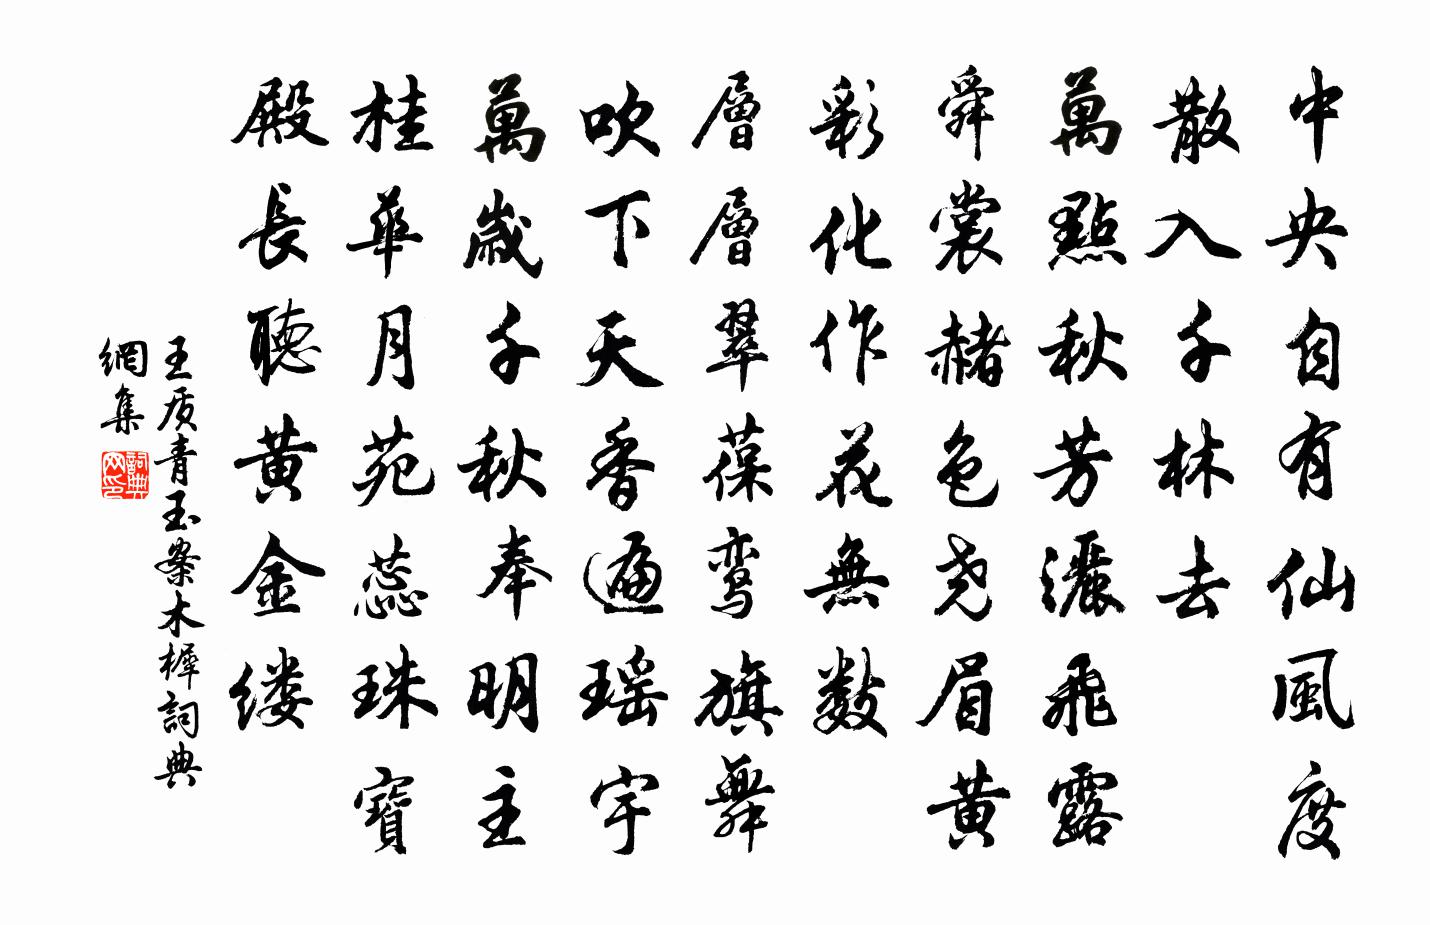 中央自有仙風度
散入千林去
萬點秋芳灑飛露
舜裳赭色尧眉黄
彩化作花無數
層層翠葆鸾旗舞
吹下天香遍瑶宇
萬歲千秋奉明主
桂華月苑蕊珠寶
殿長聽黄金缕
王质青玉案木樨詞典
網集
詞典
网印